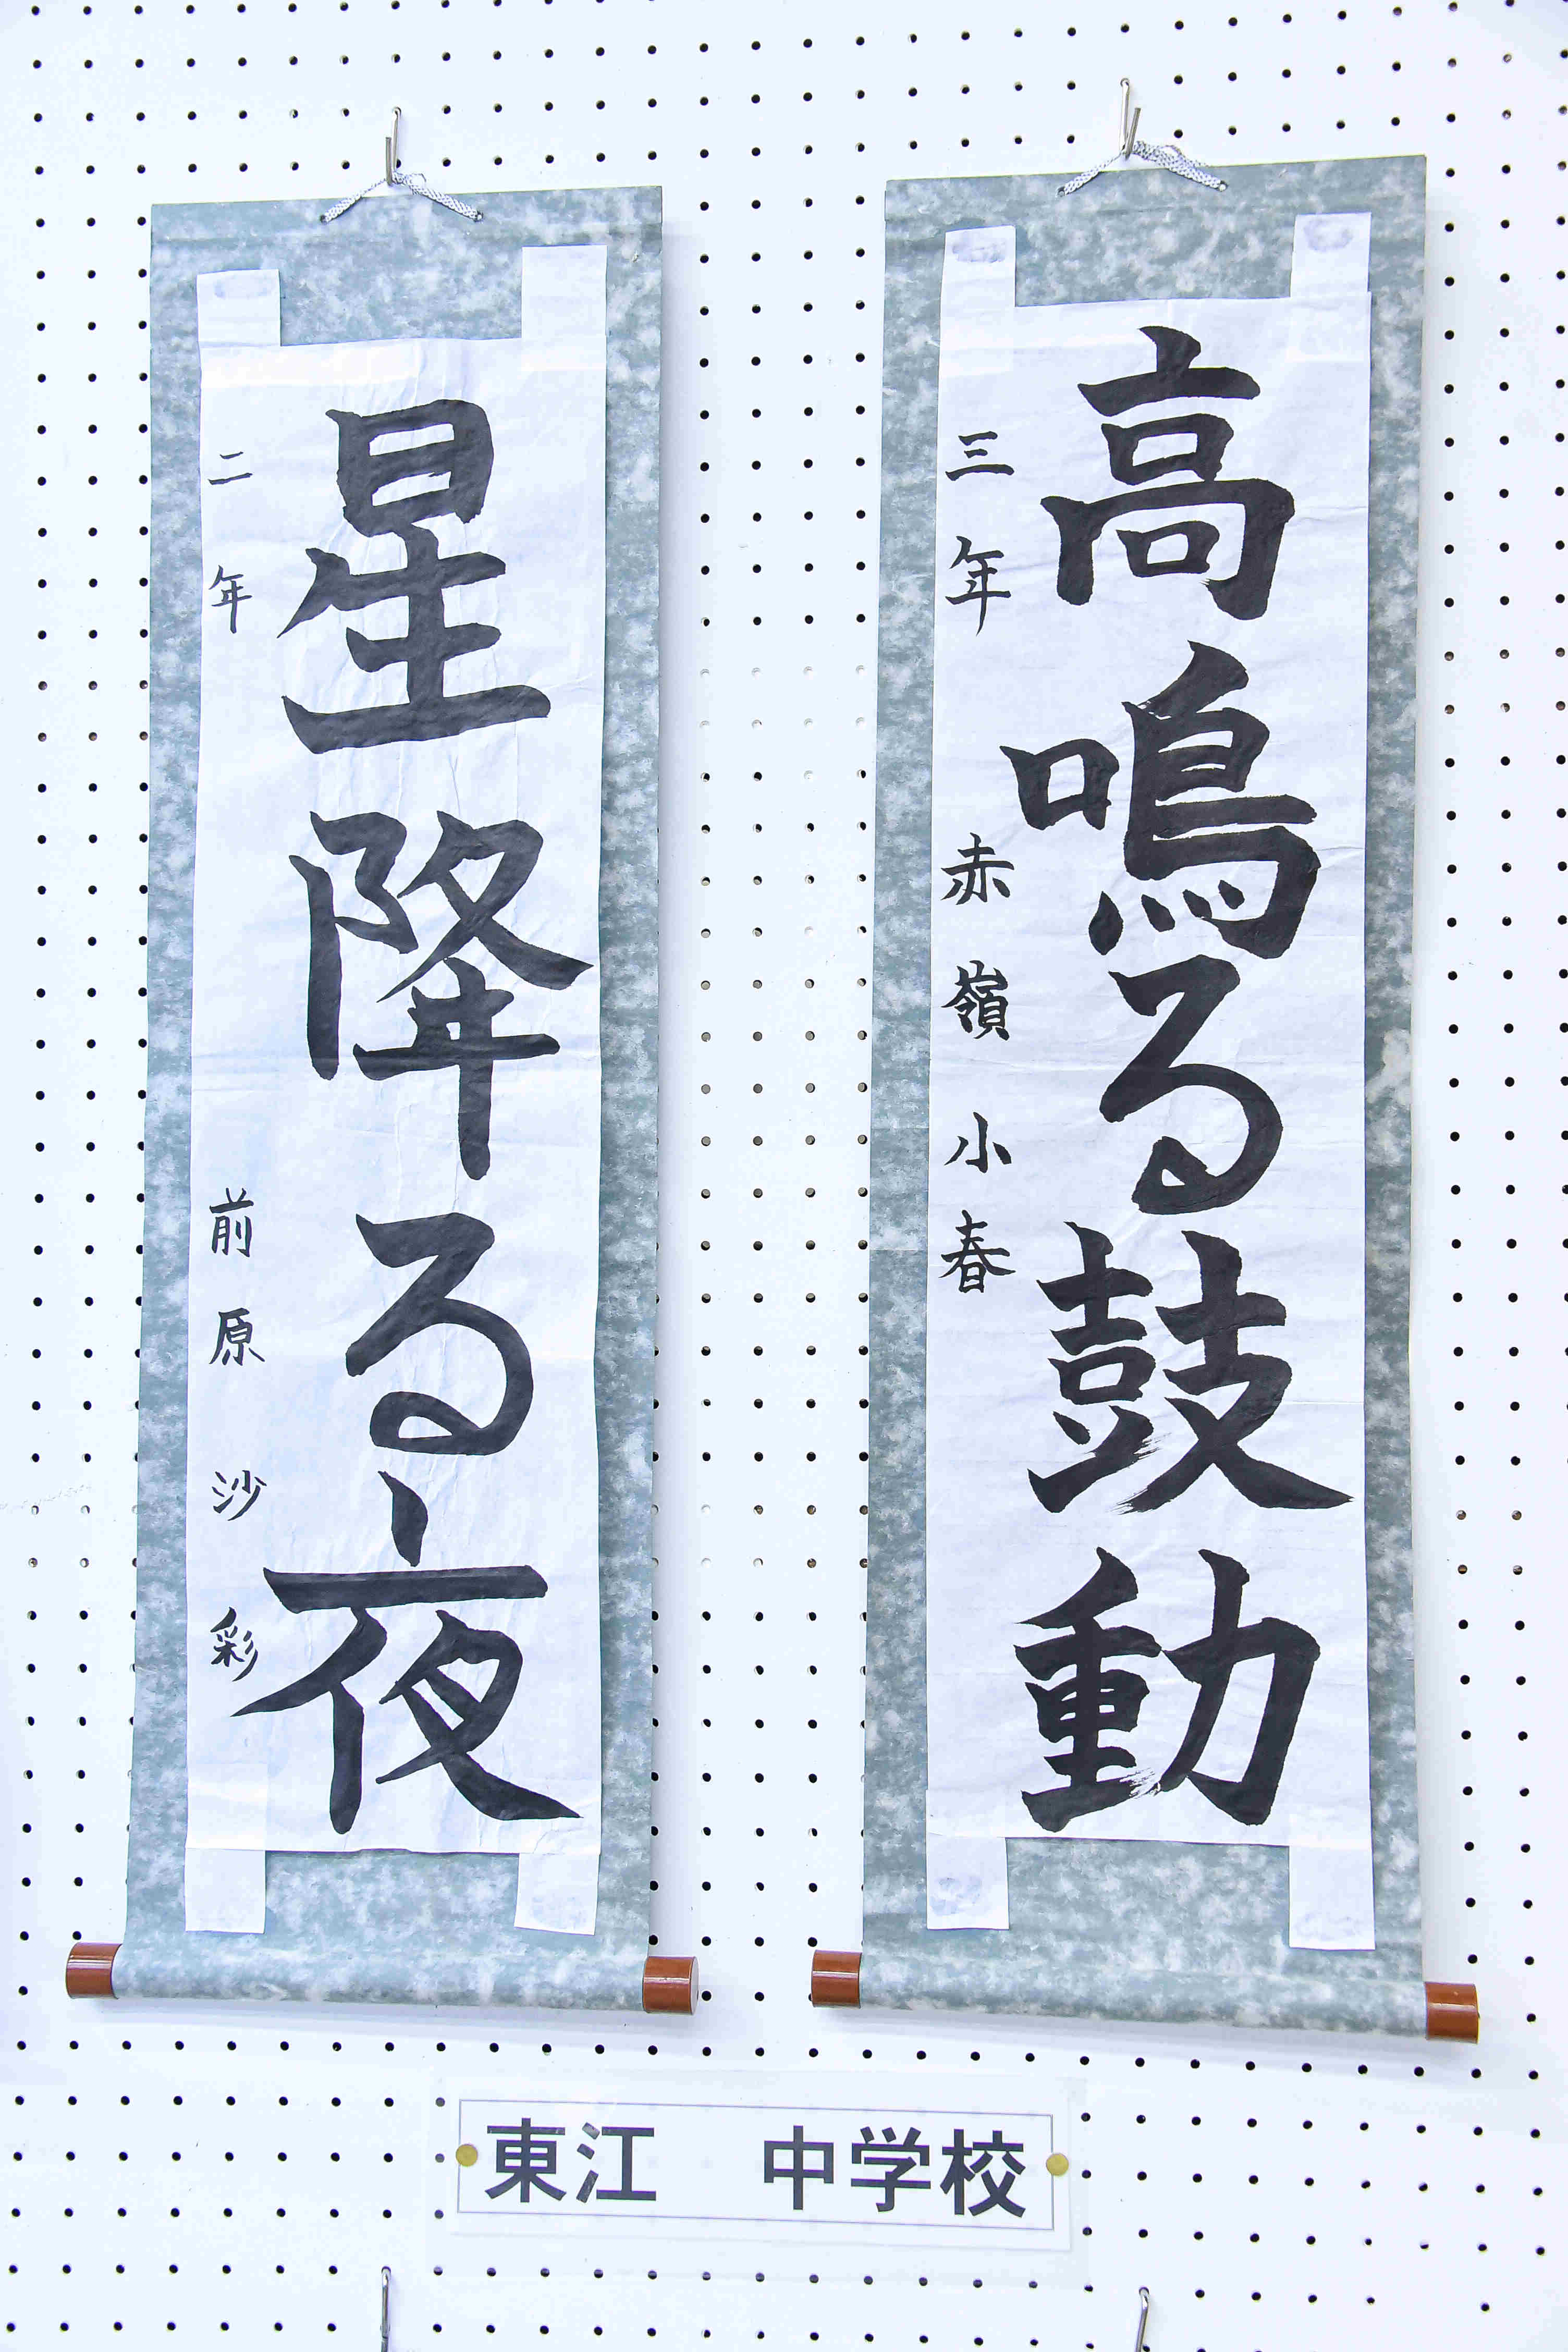 高鳴る鼓動
三年 赤嶺小春
星降る夜
二年 前原沙彩
東江 中学校